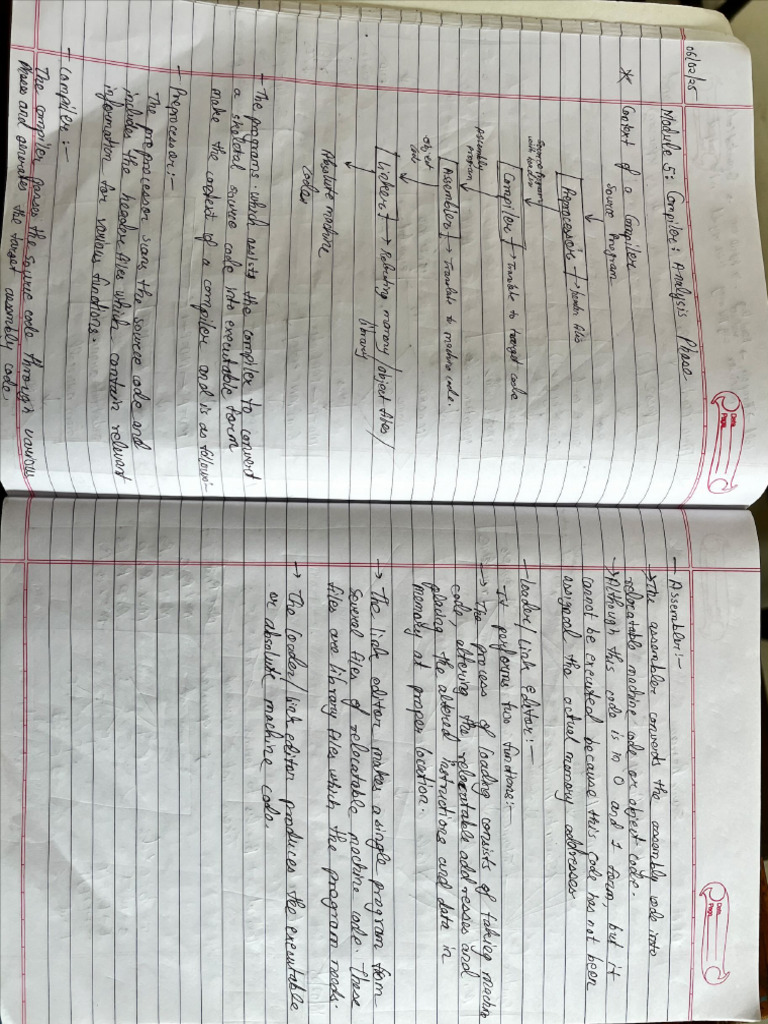 06/02/25
Module 5: Compiler: Analysis Phase
* Context of a Compiler
Source Program
Preprocessor → header files
Source program
Compiler → Translate to target code
Assembly
program
Assembler → Translate to machine code.
Object
code
Linker → Relocating memory/object files/
library
Absolute machine
codes
- The programs which assists the compiler to convert
a skeletal source code into executable form
make the context of a compiler and is as follows:-
- Preprocessor:-
The preprocessor scans the source code and
includes the header files which contain relevant
information for various functions.
- Compiler:-
The compiler passes the source code through various
Phases and generates the target assembly code.
Date
Page
- Assembler:-
→ The assembler converts the assembly code into
relocatable machine code or object code.
→ Although this code is in 0 and 1 form, but it
cannot be executed because this code has not been
assigned the actual memory addresses
- Loader/Link Editor:-
It performs two functions:-
→ The process of loading consists of taking machine
code, altering the relocatable addresses and
placing the altered instructions and data in
memory at proper location.
→ The link editor makes a single program from
several files of relocatable machine code. These
files are library files which the program needs.
→ The loader/link editor produces the executable
or absolute machine code.
Date
Page